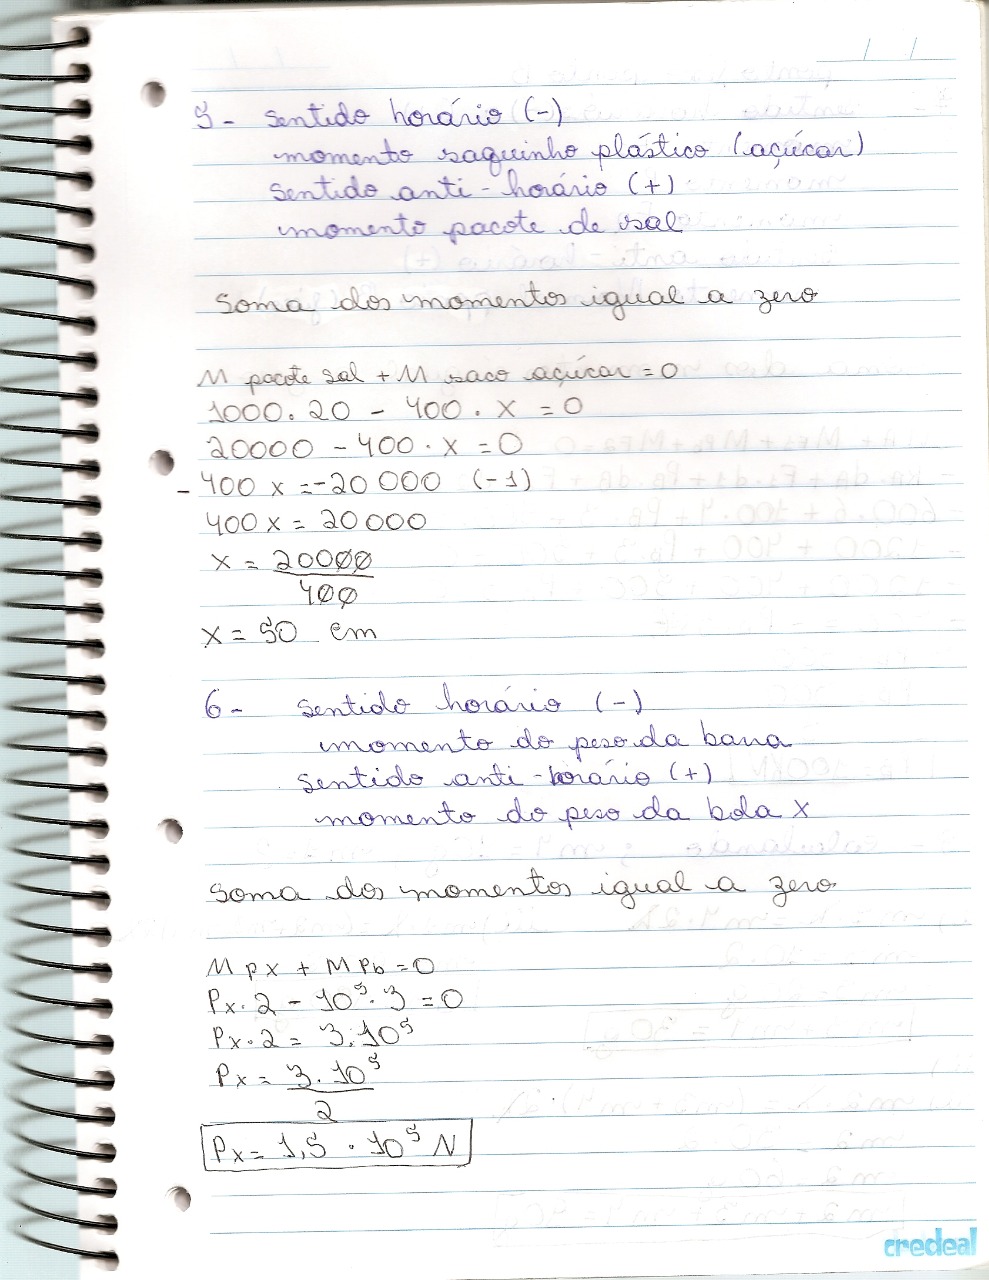 / /
5- sentido horário (-)
momento saquinho plástico (açúcar)
sentido anti-horário (+)
momento pacote de sal
Soma dos momentos igual a zero
M pacote sal + M saco açúcar = 0
1000 . 20 - 400 . x = 0
20000 - 400 . x = 0
- 400 x = -20 000 (-1)
400 x = 20 000
x = 20000
400
x = 50 cm
6- sentido horário (-)
momento do peso da barra
sentido anti-horário (+)
momento do peso da bola x
Soma dos momentos igual a zero
M px + M Pb = 0
Px . 2 - 10⁵ . 3 = 0
Px . 2 = 3 . 10⁵
Px = 3 . 10⁵
2
Px = 1,5 . 10⁵ N
credeal